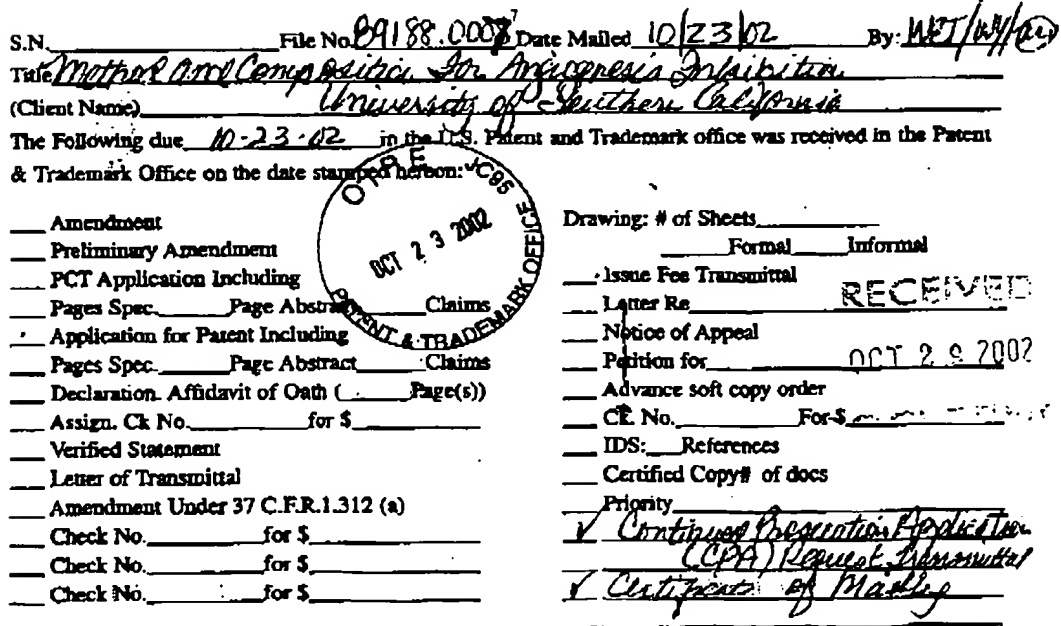 S.N. File No. 89188.0007 Date Mailed 10/23/02 By: WET/
Title Method and Composition For Angiogenesis Inhibition
(Client Name) University of Southern California
The Following due 10-23-02 in the U.S. Patent and Trademark office was received in the Patent
& Trademark Office on the date stamped hereon:
OIPE JC95
OCT 23 2002
PATENT & TRADEMARK OFFICE
Amendment
Preliminary Amendment
PCT Application Including
Pages Spec. Page Abstract Claims
Application for Patent Including
Pages Spec. Page Abstract Claims
Declaration Affidavit of Oath ( Page(s))
Assign. Ck No. for $
Verified Statement
Letter of Transmittal
Amendment Under 37 C.F.R.1.312 (a)
Check No. for $
Check No. for $
Check No. for $
Drawing: # of Sheets
Formal Informal
Issue Fee Transmittal
Letter Re
RECEIVED
Notice of Appeal
Petition for
OCT 2 2002
Advance soft copy order
CK No. For $
IDS: References
Certified Copy# of docs
Priority
✓ Continued Prosecution Application
(CPA) Request Transmittal
✓ Certificate of Mailing